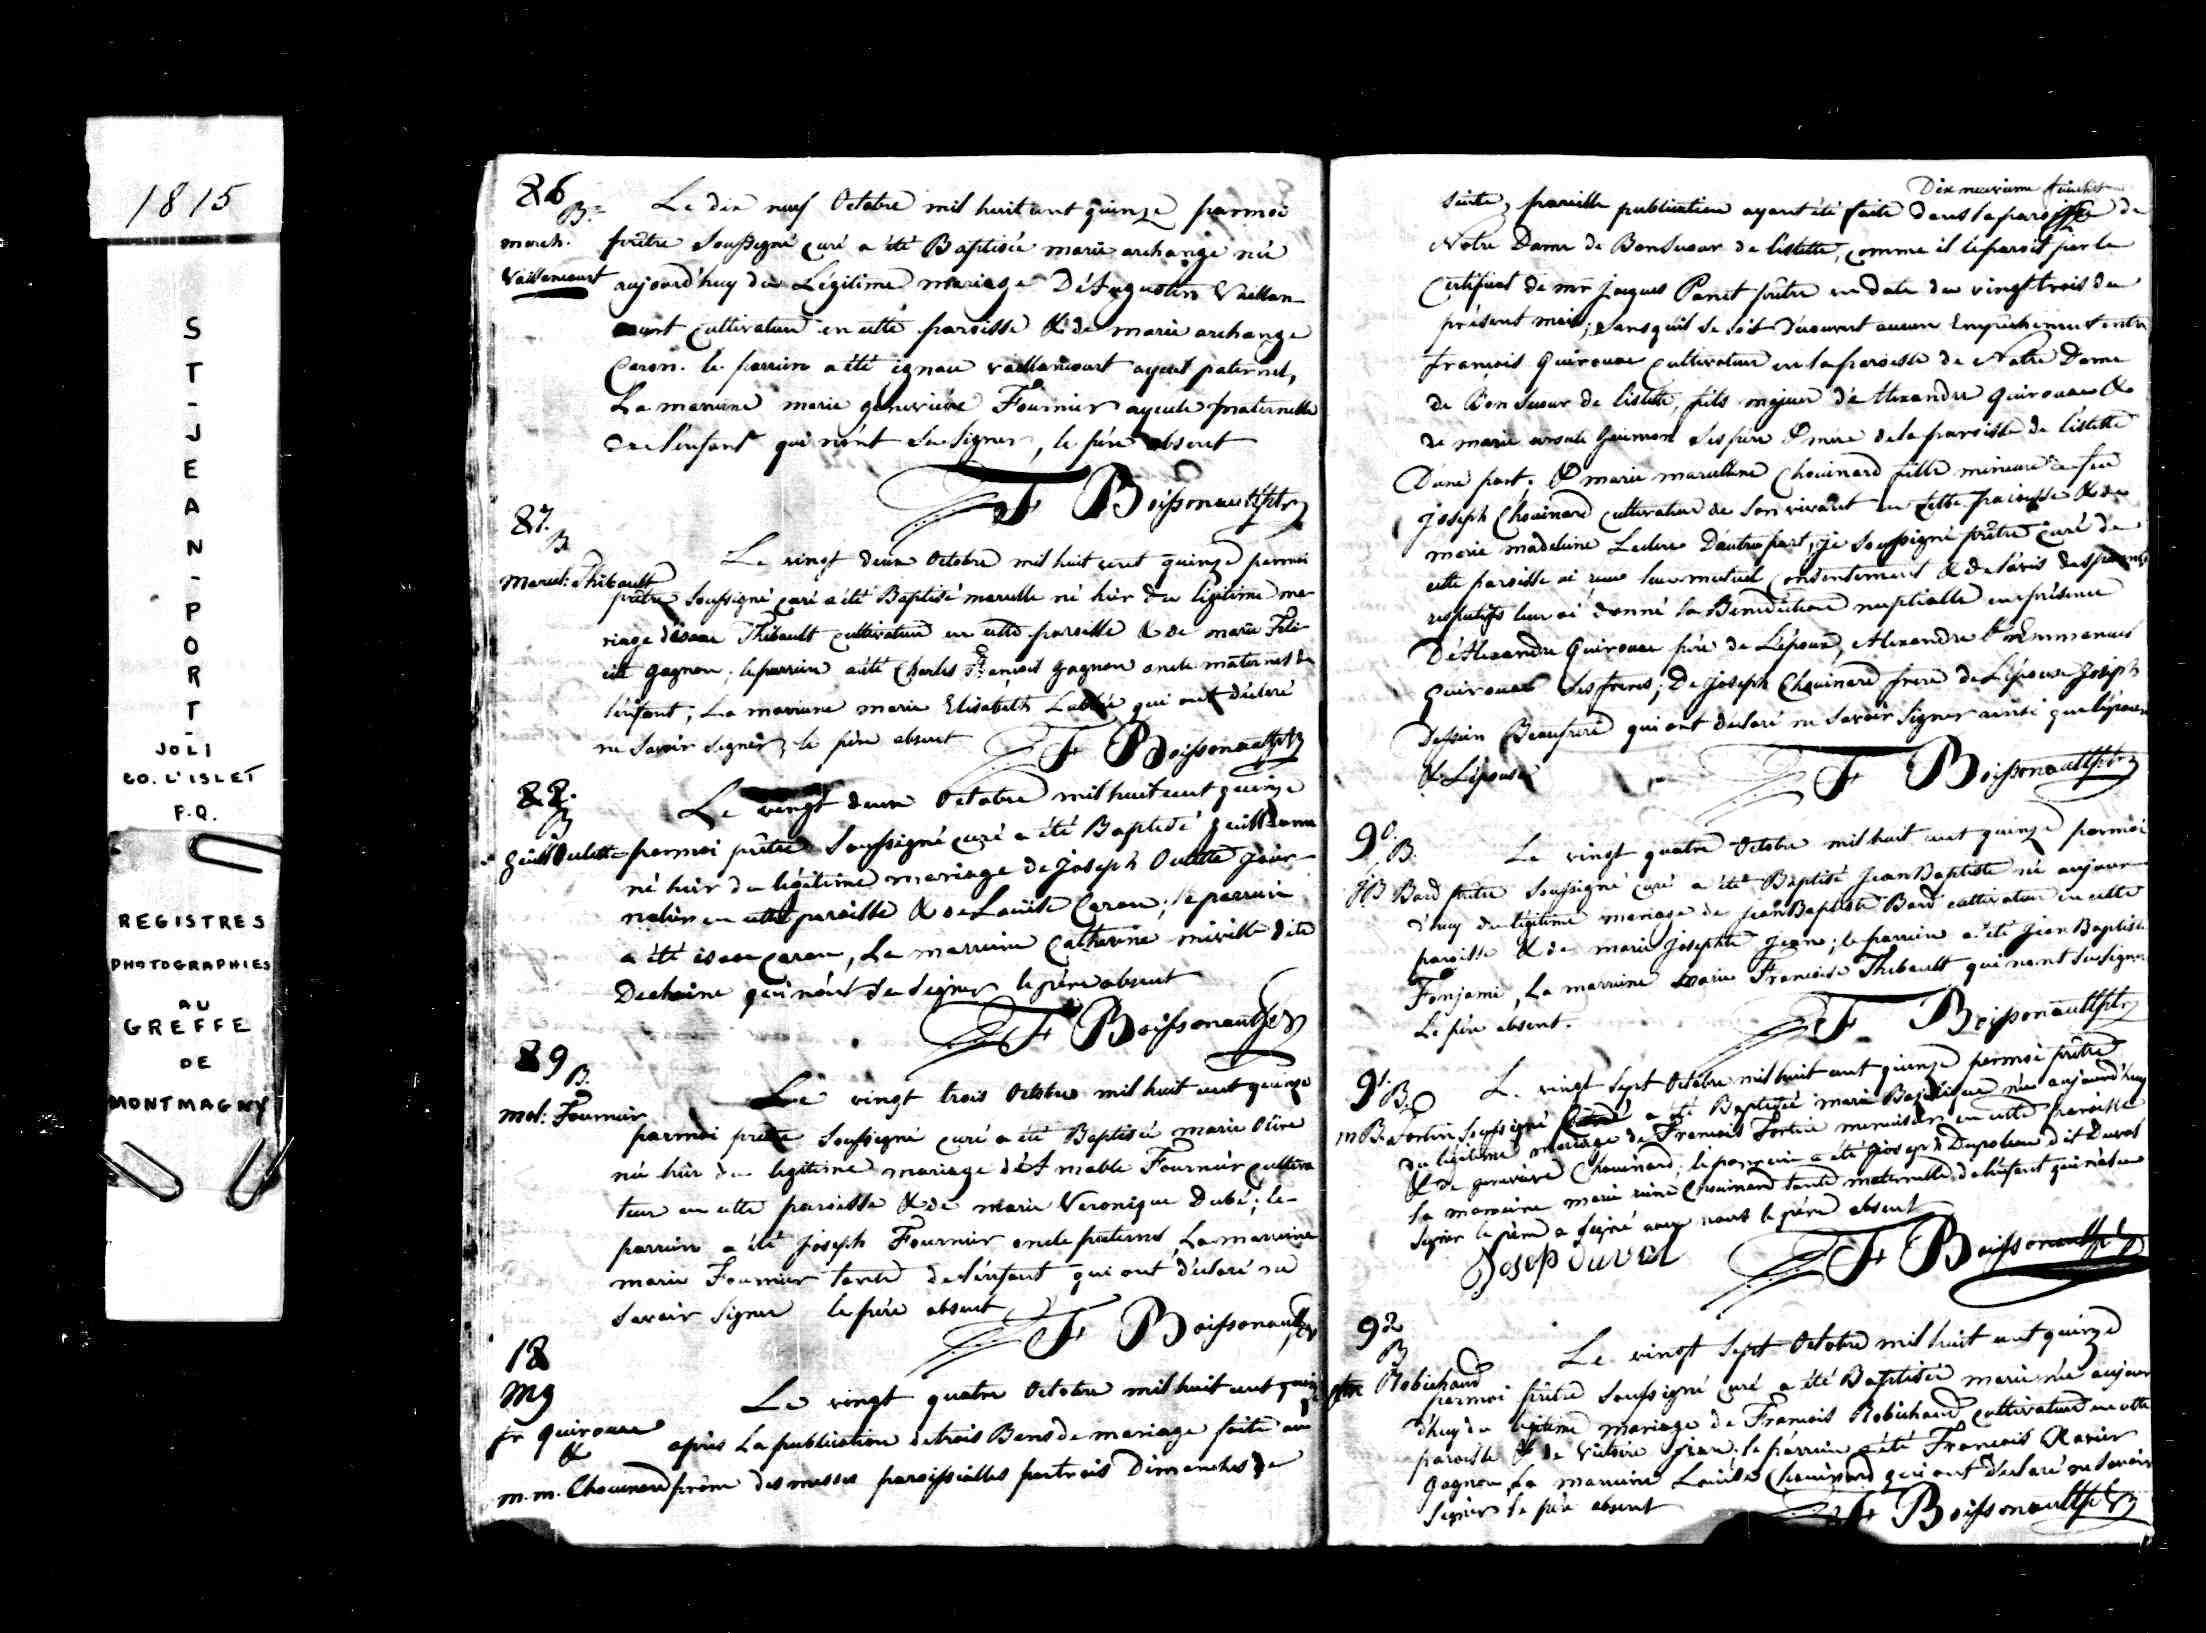 1815
ST-JEAN-PORT-
JOLI
CO. L'ISLET
P.Q.
REGISTRES
PHOTOGRAPHIES
AU
GREFFE
DE
MONTMAGNY
86
B.
march.
Vaillancourt
Le dix neuf Octobre mil huit cent quinze par moi
prêtre Soussigné curé a été Baptisée marie archange née
aujourd'huy du Légitime mariage D'Augustin Vaillan-
court cultivateur en cette paroisse & de marie archange
Caron. le parrein a été ignace vaillancourt ayeul paternel,
La mareine marie geneviève Fournier ayeule maternelle
de l'enfant qui n'ont su signer, le père absent
F Boissonnault ptre
87.
B
Marcel: Thibault
Le vingt deux Octobre mil huit cent quinze par moi
prêtre soussigné curé a été Baptisé marcelle né hier du légitime ma-
riage d'isaac Thibault cultivateur en cette paroisse & de marie Féli-
cité gagnon; le parrein a été Charles François gagnon oncle maternel de
l'enfant, La mareine marie Elisabeth qui ont déclaré
ne savoir signer, le père absent F Boissonnault ptre
88.
B
guill Oulette
Le vingt deux Octobre mil huit cent quinze
par moi prêtre Soussigné curé a été Baptisé guillaume
né hier du légitime mariage de Joseph Oulette jour-
nalier en cette paroisse & de Louise Caron; le parrein
a été isaac Caron, La marreine Catherine miville dite
Dechaine qui n'ont su signer le père absent
F Boissonnault ptre
89
B.
mol: Fournier
Le vingt trois Octobre mil huit cent quinze
par moi prêtre Soussigné curé a été Baptisée marie Olive
née hier du légitime mariage d'Amable Fournier cultiva
teur en cette paroisse & de marie Veronique Dubé; le
parrein a été Joseph Fournier oncle paternel, La mareine
marie Fournier tante de l'enfant qui ont déclaré ne
savoir signer le père absent
F Boissonnault ptre
18
Mg
fr quirouac
&
m. m. Chouinard
Le vingt quatre Octobre mil huit cent quinze
après La publication de trois Bans de mariage faite au
prône des messes paroissialles par trois Dimanches de
Dix neuvieme
suite, pareille publication ayant été faite dans la paroisse de
Notre Dame de Bonsecour de l'islette, comme il paroit par le
Certificat de mr Jacques Panet prêtre en date du vingt trois du
présent mois; sans qu'il se soit découvert aucun Empêchement entre
françois quirouac cultivateur en la paroisse de Notre Dame
de Bon Secour de l'islette, fils majeur d'Alexandre quirouac &
de marie ursule guimon ses père & mère de la paroisse de l'islette
D'une part. & marie marcelline Chouinard fille mineure de feu
Joseph Chouinard cultivateur de son vivant en cette paroisse & de
marie madeleine Leclerc D'autre part, je soussigné prêtre curé de
cette paroisse ai reçu leur mutuel consentement & de l'avis des parents
respectifs leur ai donné la Bénédiction nuptialle en présence
D'Alexandre quirouac père de l'époux, Alexandre & Emmanuel
quirouac ses frères; De Joseph Chouinard frere de L'épouse Joseph
Dessein Beaufrere qui ont declaré ne savoir signer ainsi que l'époux
& L'épouse F Boissonnault ptre
90.
B.
JB Bard
Le vingt quatre Octobre mil huit cent quinze par moi
prêtre soussigné curé a été Baptisé Jean Baptiste né aujour-
d'huy du légitime mariage de Jean Baptiste Bard cultivateur en cette
paroisse & de marie Josephte Jean; le parrein a été Jean Baptiste
Fonjami, La marreine marie Françoise Thibault qui n'ont su signer
Le père absent.
F Boissonnault ptre
91.
B.
m B. Fortin
Le vingt sept Octobre mil huit cent quinze par moi prêtre
soussigné curé a été Baptisée marie Basilique née aujourd'huy
du légitime mariage de François Fortin menuisier en cette paroisse
& de geneviève Chouinard; le parrein a été Joseph Duval
La mareine marie reine Chouinard tante maternelle de l'enfant qui n'a su
signer le père a signé avec nous le père absent
Josep duval F Boissonnault ptre
92
B
Robichaud
Le vingt sept Octobre mil huit cent quinze
par moi prêtre soussigné curé a été Baptisée marie née aujour
d'huy du légitime mariage de François Robichaud cultivateur en cette
paroisse & de Victoire Jean; le parrein a été François Xavier
gagnon, La mareine Louise Chouinard qui ont déclaré ne savoir
signer le père absent F Boissonnault ptre